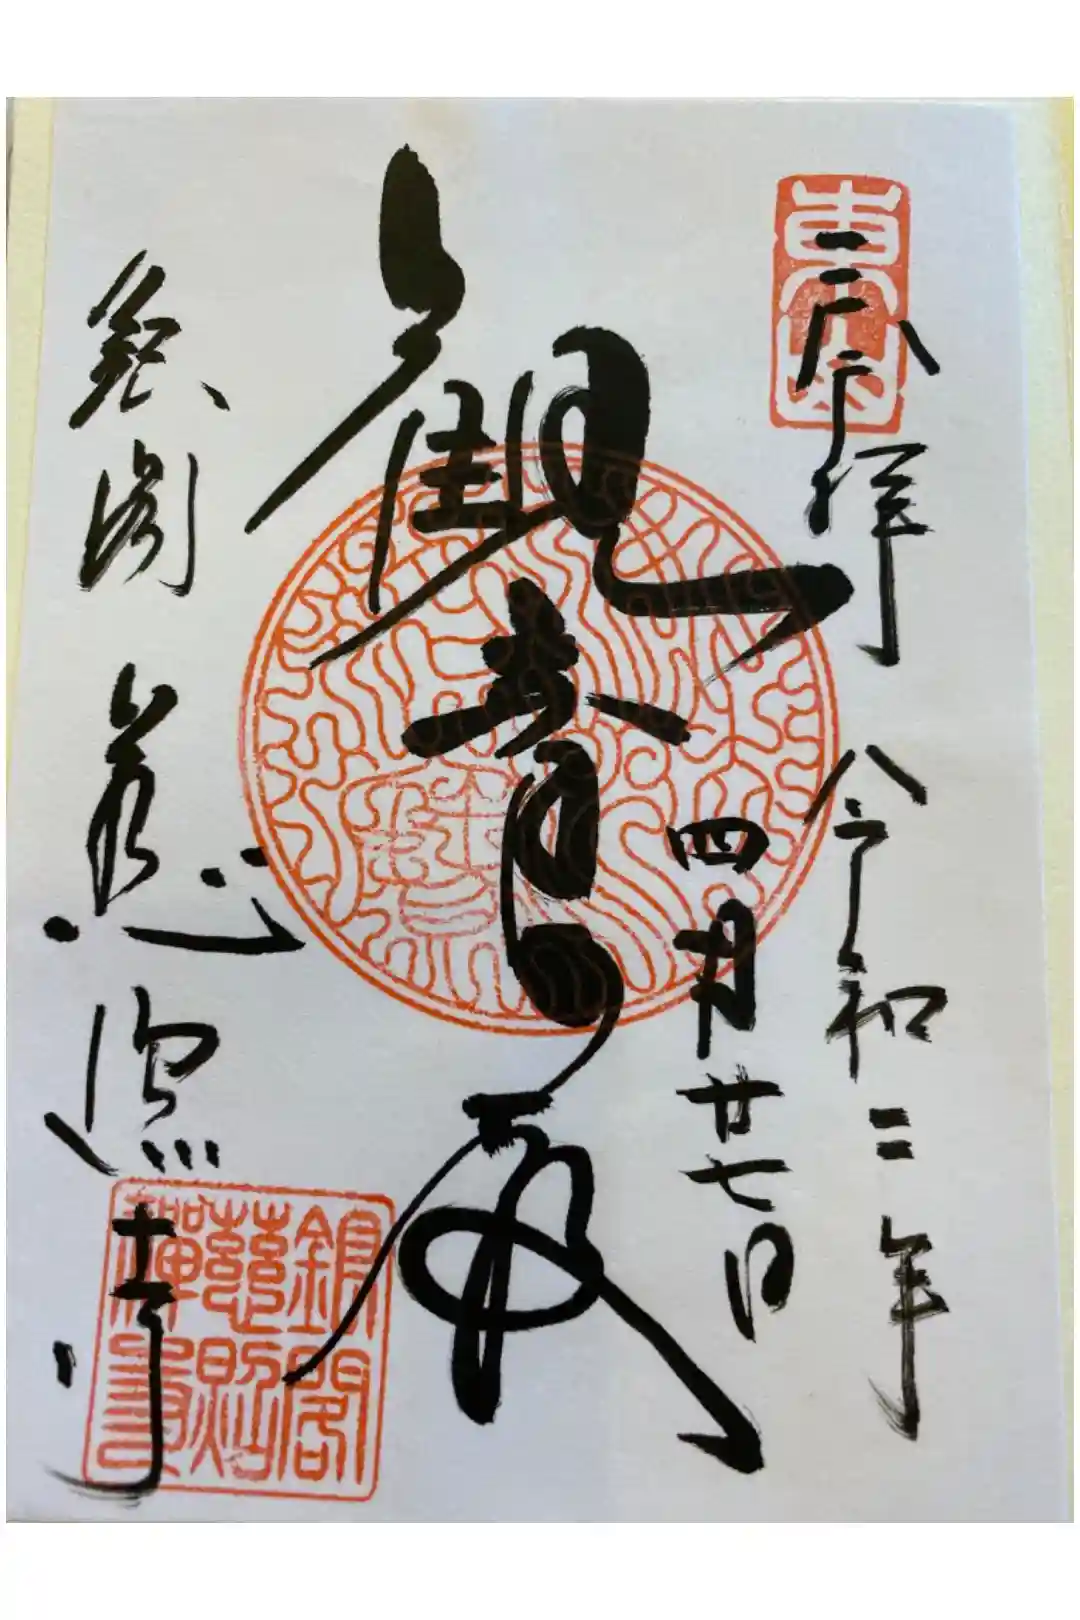 奉拝 令和二年
四月廿七日
觀音殿
銀閣 慈照寺
東山
銀閣
慈照
禪寺